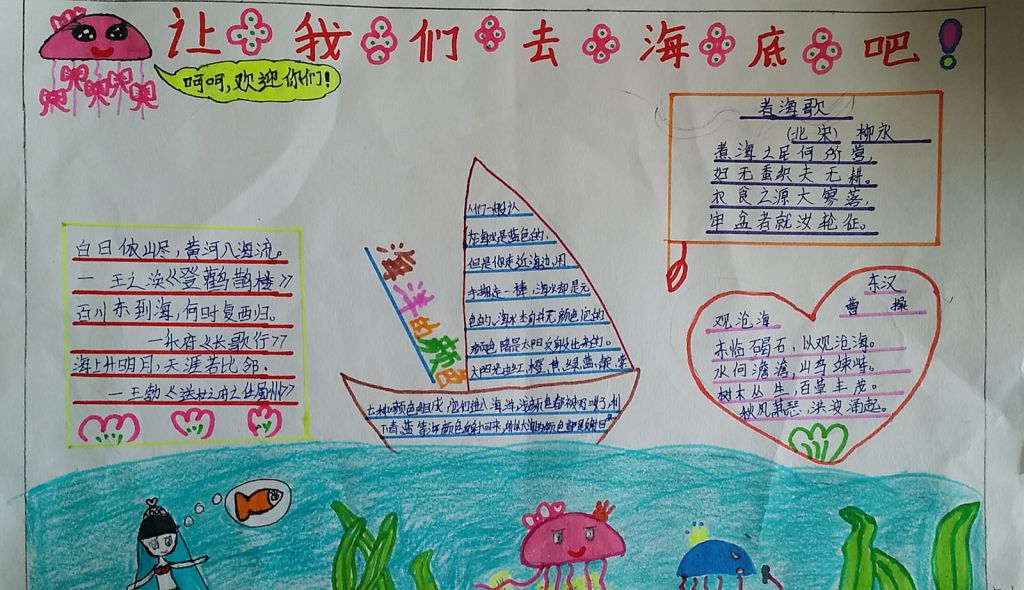 让我们去海底吧！
呵呵,欢迎你们！
白日依山尽,黄河入海流。
—王之涣《登鹳鹊楼》
百川东到海,何时复西归。
—乐府《长歌行》
海上升明月,天涯若比邻.
—王勃《送杜甫之任蜀州》
海洋的颜色
人们一般认
为海水是蓝色的,
但是你走近海边,用
手捧走一棒,海水却是无
色的。海水本身并无颜色,它的
颜色是太阳反射出来的。
太阳光由红、橙、黄、绿、蓝、靛、紫
七种颜色组成,它们进入海洋,
煮海歌
(北宋) 柳永
煮海之民何所营,
妇无蚕织夫无耕。
衣食之源大寥落,
牢盆煮就汝轮征。
东汉
曹操
观沧海
东临碣石,以观沧海。
水何澹澹,山岛竦峙。
树木丛生,百草丰茂。
秋风萧瑟,洪波涌起。